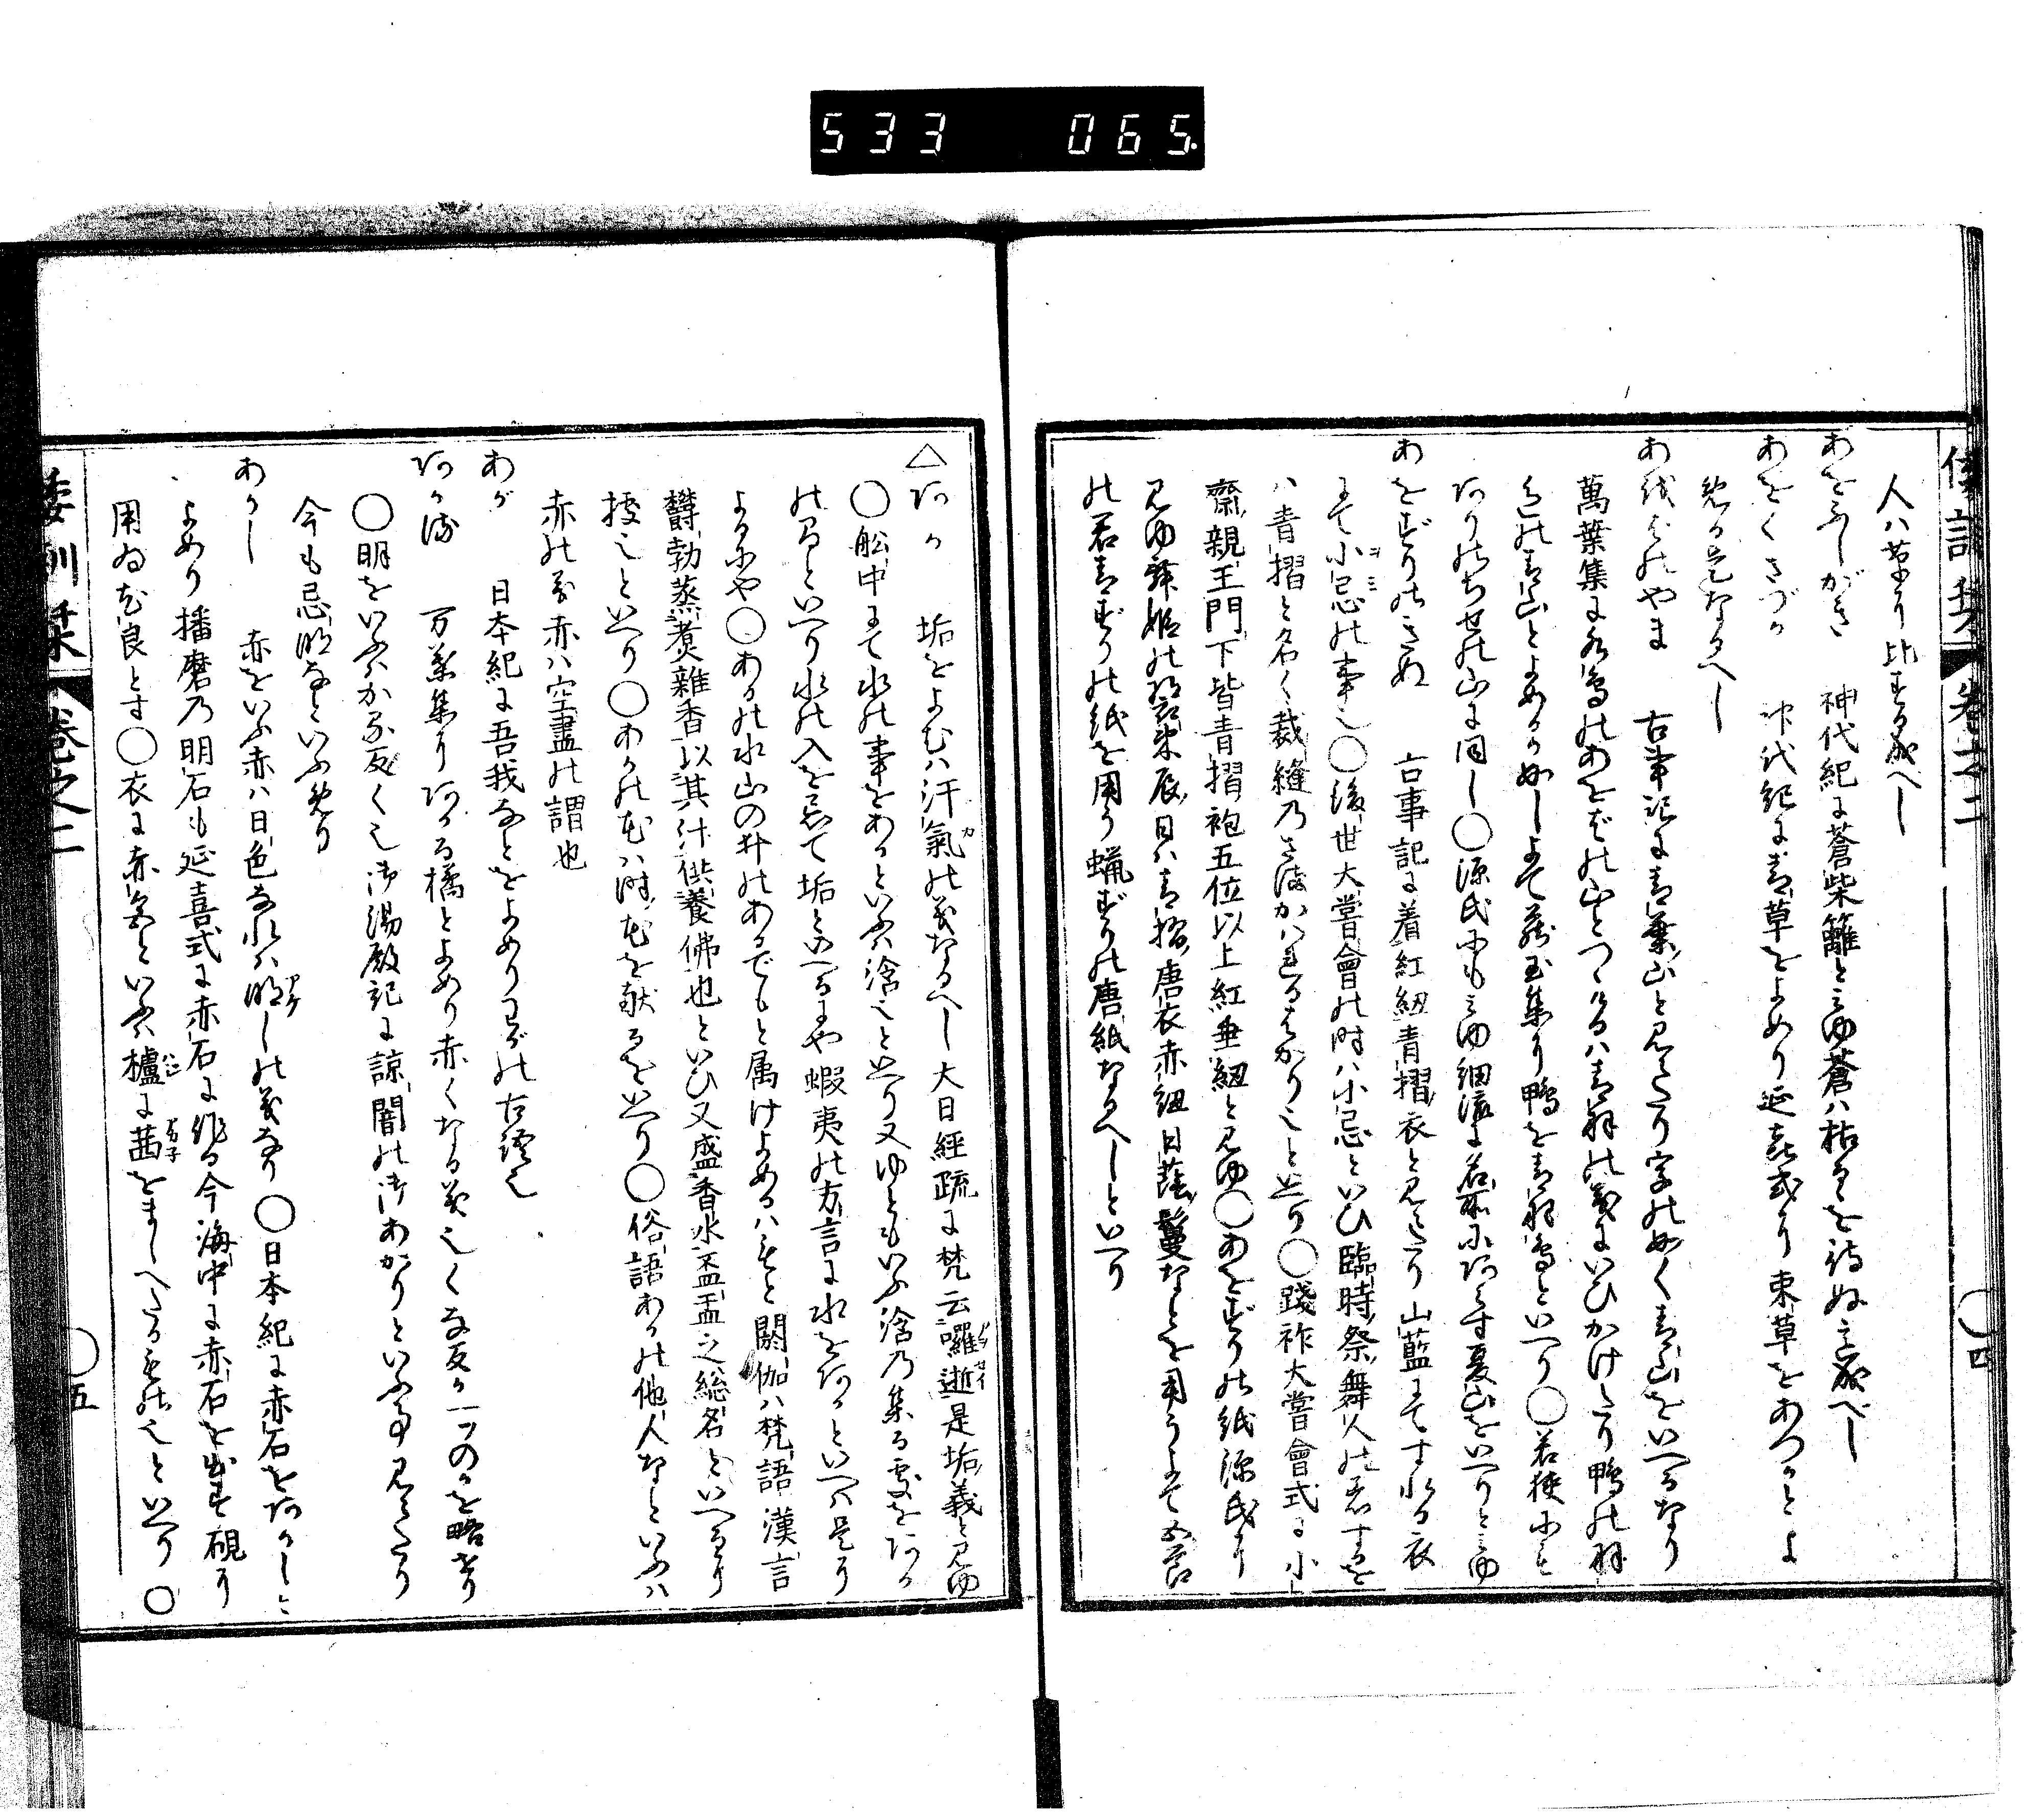 533 065
倭訓栞 巻之二 四
人ハ草に比する成へし
あをふしがき 神代紀に蒼柴籬と見ゆ蒼ハ枯るを待ぬ意成べし
あをくさづか 神代紀に青草をよめり延喜式に束草をあつかとよ
めるも是なるへし
あをばのやま 古事記に青葉山と見えたり字の如く青山をいへるなり
萬葉集に水鳥のあをばの山とつゝけるハ青羽の義にいひかけたり鴨の羽
色の青山とよめるか如しよて蔵玉集に鴨を青羽鳥といへり〇若狭にも
ありのちせの山に同し〇源氏にも見ゆ細流に名所にあらす夏山をいへりと見ゆ
あをずりのきぬ 古事記に着紅紐青摺衣と見えたり山藍にてすれる衣
にて小忌の事也〇後世大嘗會の時ハ小忌といひ臨時祭舞人の着するを
ハ青摺と名く裁縫乃さまかハれるはかり也といへり〇踐祚大嘗會式に小
齋親王門下皆青摺袍五位以上紅垂紐と見ゆ〇あをずりの紙源氏に
見ゆ舞姫の装束辰日ハ青摺唐衣赤紐日蔭鬘なとを用うよて五節
の君青ずりの紙を用う蝋ずりの唐紙なるへしといへり
△あか 垢をよむハ汗氣の義なるへし大日經疏に梵云囉逝是垢義と見ゆ
〇舩中にて水の事をあかといふハ淦也といへり又ゆともいふ淦乃集る處をあか
の間といへり水の入を忌て垢といへるにや蝦夷の方言に水をあかといへハ是に
よるにや〇あかの水山の井のあかでもと属けよめるハもと閼伽ハ梵語漢言
欝勃蒸煑雜香以其汁供養佛也といひ又盛香水盃盂之総名といへるに
據也といへり〇あかの花ハ時花を献るをいへり〇俗語あかの他人なといふハ
赤の義赤ハ空盡の謂也
あが 日本紀に吾我なとをよめりわがの古語也
あかる 万葉集にあかる橘とよめり赤くなる義也くな反か一ツのかを略せり
〇明をいふハか る反く也御湯殿記に諒闇の御あかりといふ事見えたり
今も忌明なといふ如し
あかし 赤をいふ赤ハ日色なれハ明しの義なり〇日本紀に赤石をあかしと
よめり播磨乃明石も延喜式に赤石に作る今海中に赤石を出す硯に
用ゐて良とす〇衣に赤色といふハ櫨に茜をましへたるもの也といへり〇
倭訓栞 巻之二 五